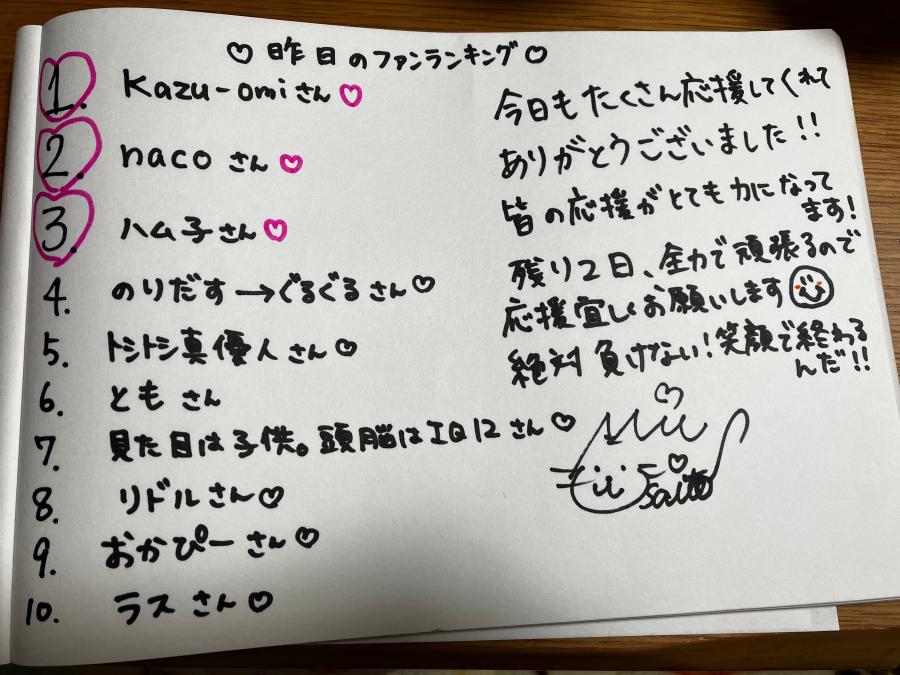 ♡昨日のファンランキング♡
1. Kazu-omiさん♡
2. nacoさん♡
3. ハム子さん♡
4. のりだす→ぐるぐるさん♡
5. トシトシ真優人さん♡
6. ともさん
7. 見た目は子供。頭脳はIQ12さん♡
8. リドルさん♡
9. おかぴーさん♡
10. ラスさん♡
今日もたくさん応援してくれて
ありがとうございました!!
皆の応援がとても力になって
ます!
残り2日、全力で頑張るので
応援宜しくお願いします
絶対負けない!笑顔で終わる
んだ!!